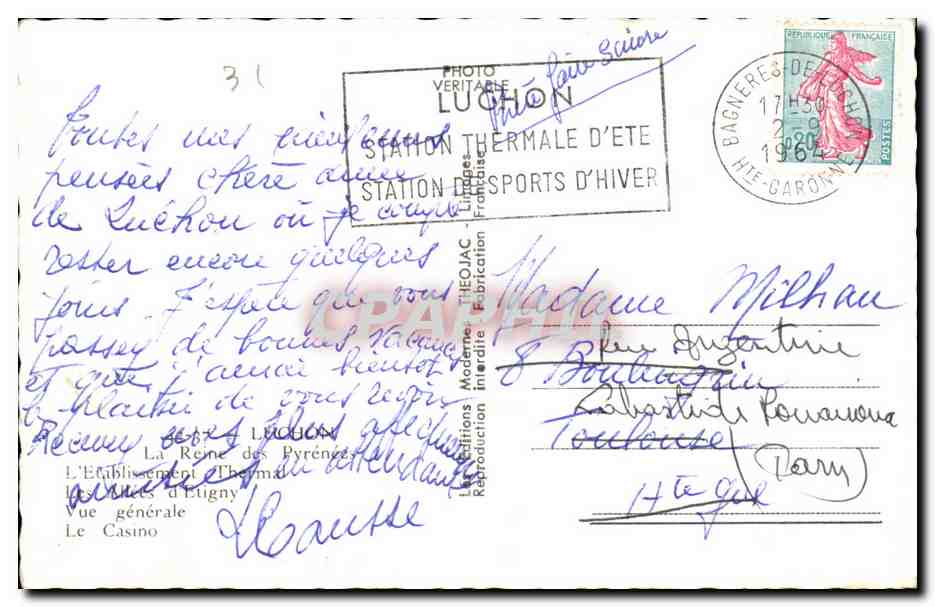 31
PHOTO
VERITABLE
Prière faire suivre
LUCHON
STATION THERMALE D'ETE
STATION DE SPORTS D'HIVER
BAGNERES-DE-LUCHON
17H30
2-9
1964
HTE-GARONNE
REPUBLIQUE FRANÇAISE
0,20
POSTES
Toutes mes meilleures
pensées chère amie
de Luchon où je compte
rester encore quelques
jours. J'espère que vous
passez de bonnes vacances
et que j'aurai bientôt
le plaisir de vous revoir
Recevez mes plus affectueuses
amitiés en attendant
LUCHON
La Reine des Pyrénées
L'Etablissement Thermal
Les Allées d'Etigny
Vue générale
Le Casino
Editions Modernes THEOJAC - Limoges
Reproduction interdite Fabrication Française
CPAPHIL
Madame Milhau
Rue Argentine
8 Boulingrin
Labastide Rouairoux
Toulouse
(Tarn)
Hte Gne